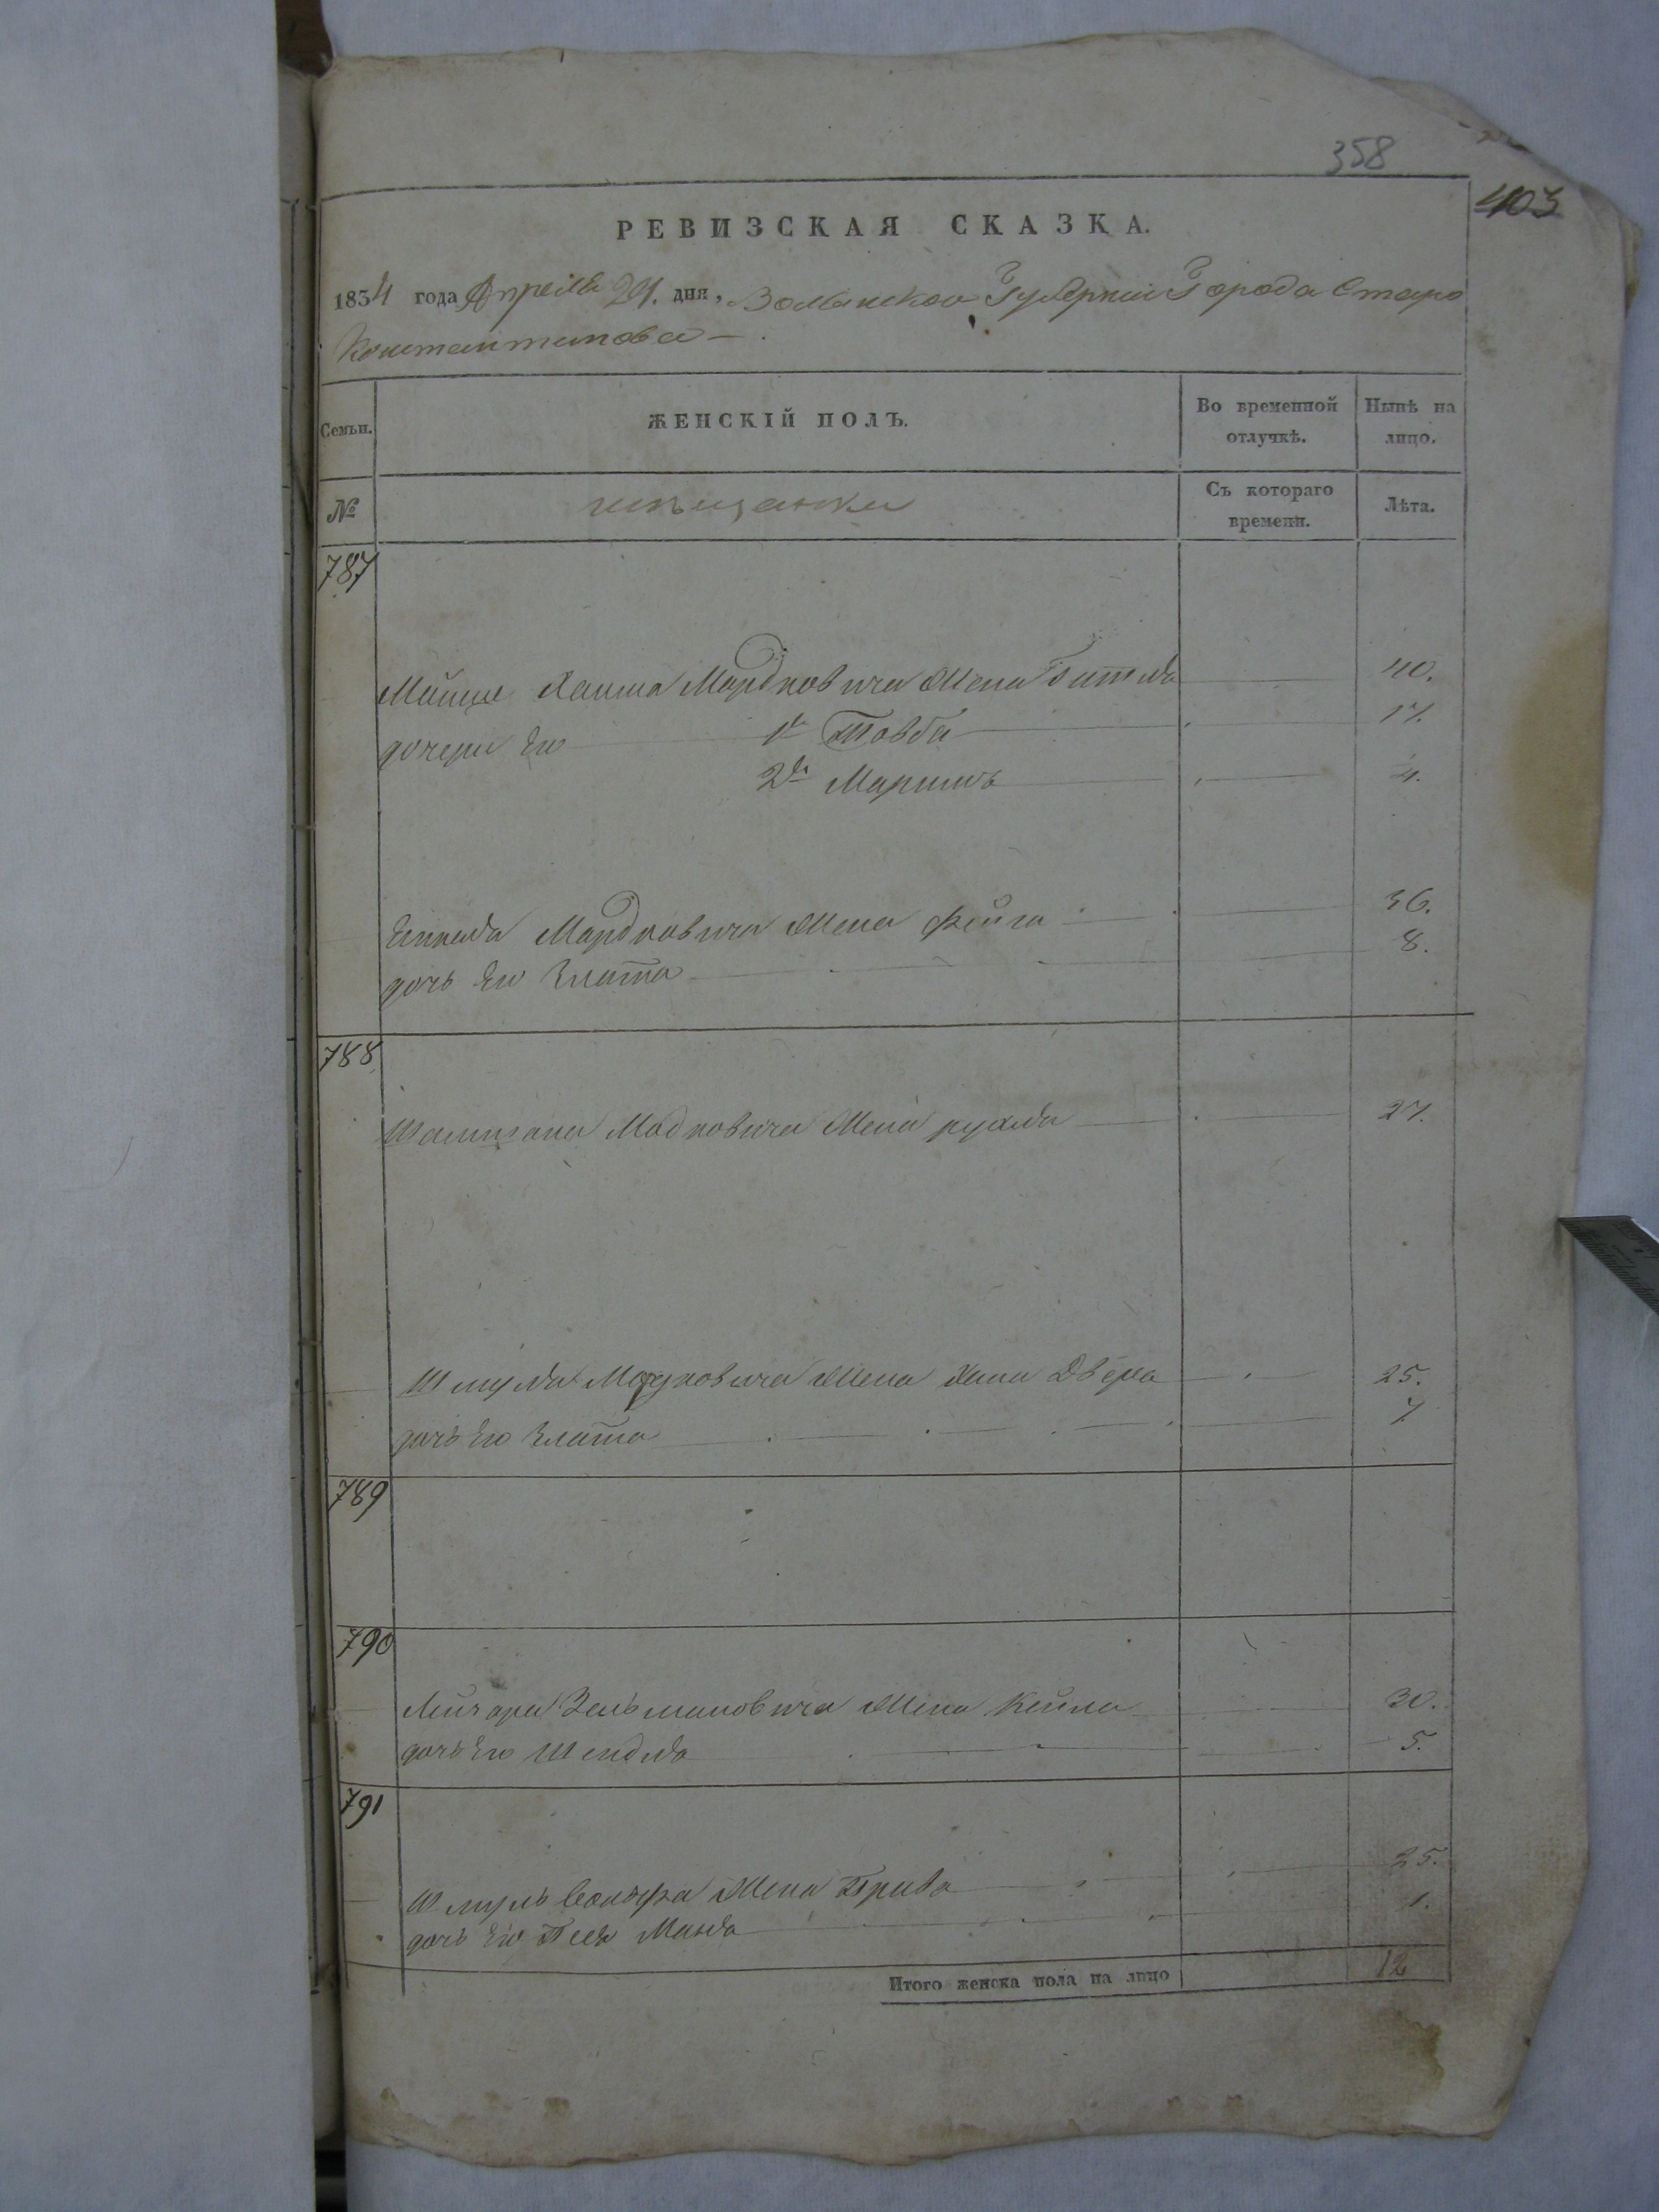 358
403
РЕВИЗСКАЯ СКАЗКА.
1834 года Апреля 21. дня, Волынской Губернии Города Старо
Константинова —
Семьи. ЖЕНСКІЙ ПОЛЪ. Во временной отлучкѣ. Нынѣ на лицо.
№ мѣщанки Съ котораго времени. Лѣта.
787
Мордковича Жена Гитля 40.
дочери Его 1я Товба 17.
2я Маримъ 4.
Мордковича Жена Фейга 36.
дочь Его Злата 8.
788
Мадковича Жена рухля 27.
Шмуля Мордковича Жена Хана Двера 25.
дочь Его Злата 7
789
790
Зельмановича Жена Кейла 30.
дочь Его Шендля 5.
791
Шмуль Жена 25.
дочь Его 1.
Итого женска пола на лицо 12